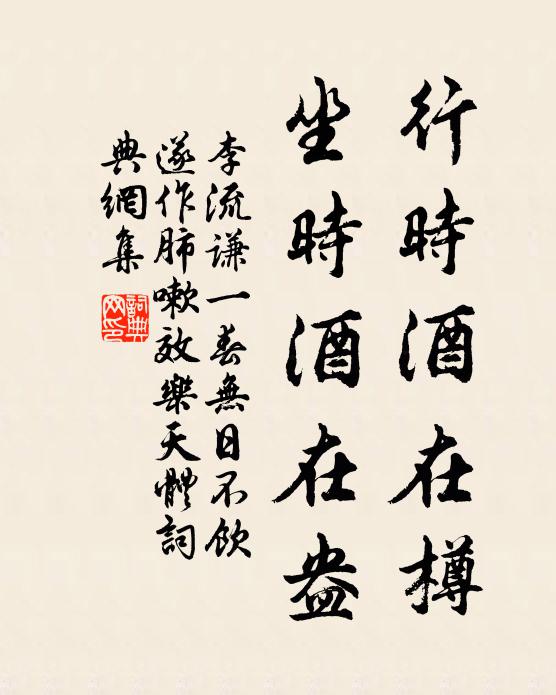 行時酒在樽
坐時酒在盎
李流謙一春無日不飲
遂作肺嗽效樂天體詞
典網集
詞典网印